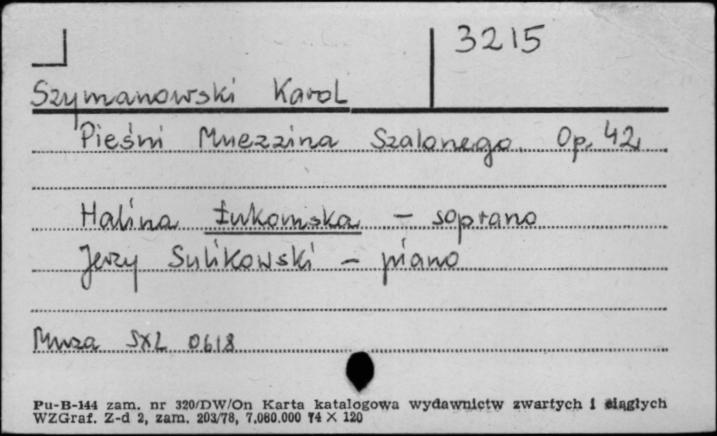 3215
Szymanowski Karol
Pieśni Muezzina Szalonego. Op. 42
Halina Łukomska - soprano
Jerzy Sulikowski - piano
Muza SXL 0618
Pu-B-144 zam. nr 320/DW/On Karta katalogowa wydawnictw zwartych i ciągłych
WZGraf. Z-d 2, zam. 203/78, 7.060.000 74 X 120